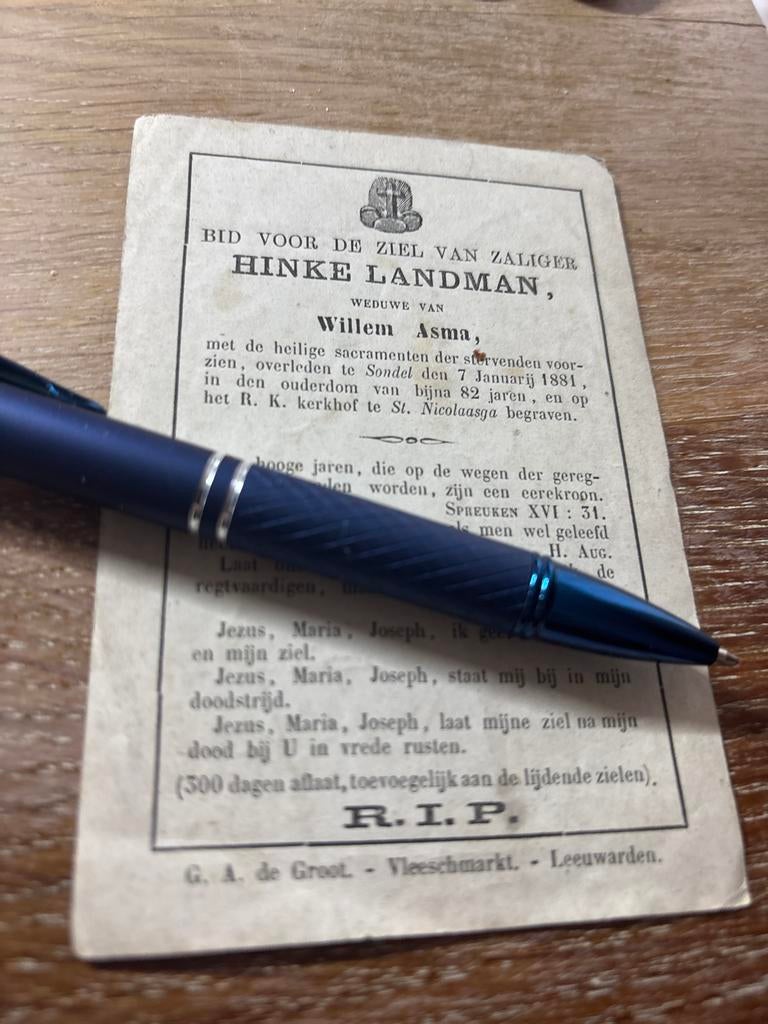 BID VOOR DE ZIEL VAN ZALIGER
HINKE LANDMAN,
WEDUWE VAN
Willem Asma,
met de heilige sacramenten der stervenden voor-
zien, overleden te Sondel den 7 Januarij 1881,
in den ouderdom van bijna 82 jaren, en op
het R. K. kerkhof te St. Nicolaasga begraven.
hooge jaren, die op de wegen der gereg-
worden, zijn een eerekroon.
SPREUKEN XVI : 31.
men wel geleefd
H. AUG.
Laat de
regtvaardigen,
Jezus, Maria, Joseph, ik
en mijn ziel.
Jezus, Maria, Joseph, staat mij bij in mijn
doodstrijd.
Jezus, Maria, Joseph, laat mijne ziel na mijn
dood bij U in vrede rusten.
(300 dagen aflaat, toevoegelijk aan de lijdende zielen).
R. I. P.
G. A. de Groot. - Vleeschmarkt. - Leeuwarden.